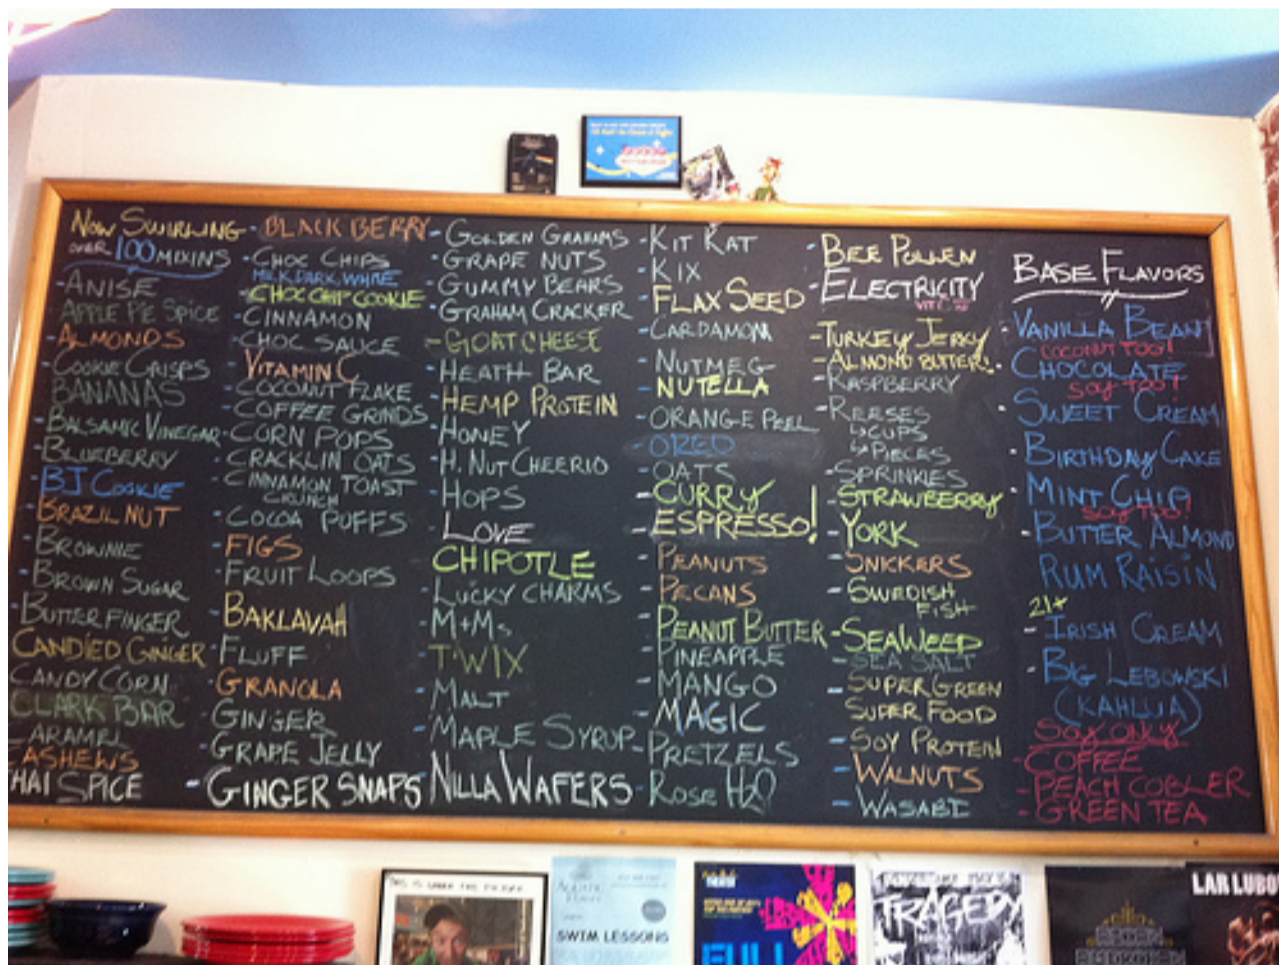 NOW SWIRLING
OVER 100 MIXINS
-ANISE
APPLE PIE SPICE
-ALMONDS
-COOKIE CRISPS
BANANAS
-BALSAMIC VINEGAR
-BLUEBERRY
-BJ COOKIE
-BRAZIL NUT
-BROWNIE
-BROWN SUGAR
-BUTTERFINGER
CANDIED GINGER
CANDY CORN
CLARK BAR
ARAMEL
ASHEWS
HAI SPICE
-BLACKBERRY
-CHOC CHIPS
MILK DARK WHITE
-CHOC CHIP COOKIE
-CINNAMON
-CHOC SAUCE
VITAMIN C
-COCONUT FLAKE
-COFFEE GRINDS
-CORN POPS
-CRACKLIN OATS
-CINNAMON TOAST
CRUNCH
-COCOA PUFFS
-FIGS
-FRUIT LOOPS
-BAKLAVAH
-FLUFF
-GRANOLA
-GINGER
-GRAPE JELLY
-GINGER SNAPS
-GOLDEN GRAHAMS
-GRAPE NUTS
-GUMMY BEARS
-GRAHAM CRACKER
-GOAT CHEESE
-HEATH BAR
-HEMP PROTEIN
-HONEY
-H. NUT CHEERIO
-HOPS
LOVE
CHIPOTLE
-LUCKY CHARMS
-M+Ms
-TWIX
-MALT
-MAPLE SYRUP
-NILLA WAFERS
-KIT KAT
-KIX
-FLAX SEED
-CARDAMOM
-NUTMEG
-NUTELLA
-ORANGE PEEL
-OREO
-OATS
-CURRY
-ESPRESSO!
-PEANUTS
-PECANS
-PEANUT BUTTER
-PINEAPPLE
-MANGO
-MAGIC
-PRETZELS
-ROSE H2O
-BEE POLLEN
-ELECTRICITY
-TURKEY JERKY
-ALMOND BUTTER!
-RASPBERRY
-REESES
↳CUPS
↳PIECES
-SPRINKLES
-STRAWBERRY
-YORK
-SNICKERS
-SWEDISH
FISH
-SEAWEED
-SEA SALT
-SUPER GREEN
SUPER FOOD
-SOY PROTEIN
-WALNUTS
-WASABI
BASE FLAVORS
-VANILLA BEAN
COCONUT TOO!
-CHOCOLATE
SOY TOO!
-SWEET CREAM
-BIRTHDAY CAKE
-MINT CHIP
SOY TOO!
-BUTTER ALMOND
RUM RAISIN
21+
-IRISH CREAM
-BIG LEBOWSKI
(KAHLUA)
SOY ONLY
-COFFEE
-PEACH COBLER
-GREEN TEA
SWIM LESSONS
FULL
TRAGEDY
LAR LUBO